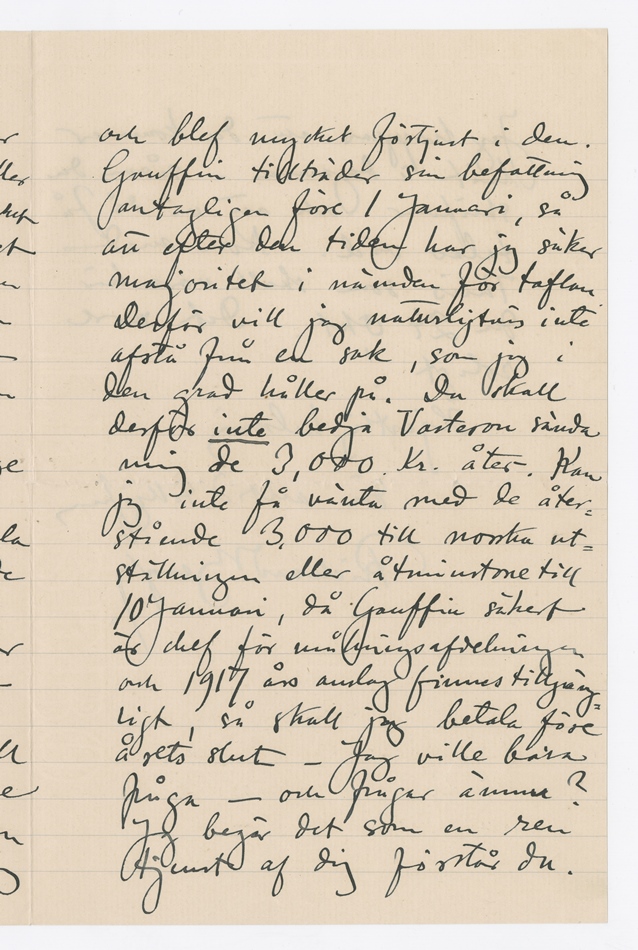 och blef mycket förtjust i den.
Gauffin tillträder sin befattning
antagligen före 1 Januari, så
att efter den tiden har jag säker
majoritet i nämnden för taflan.
Derför vill jag naturligtvis inte
afstå från en sak, som jag i
den grad håller på. Du skall
derför inte bedja Vasteson sända
mig de 3,000 Kr. åter. Kan
jag inte få vänta med de åter=
stående 3,000 till norska ut=
ställningen eller åtminstone till
10 Januari, då Gauffin säkert
är chef för målningsafdelningen
och 1917 års anslag finnes tillgäng=
ligt, så skall jag betala före
årets slut – Jag ville bara
fråga – och frågar ännu?
Jag begär det som en ren
tjenst af dig förstår du.